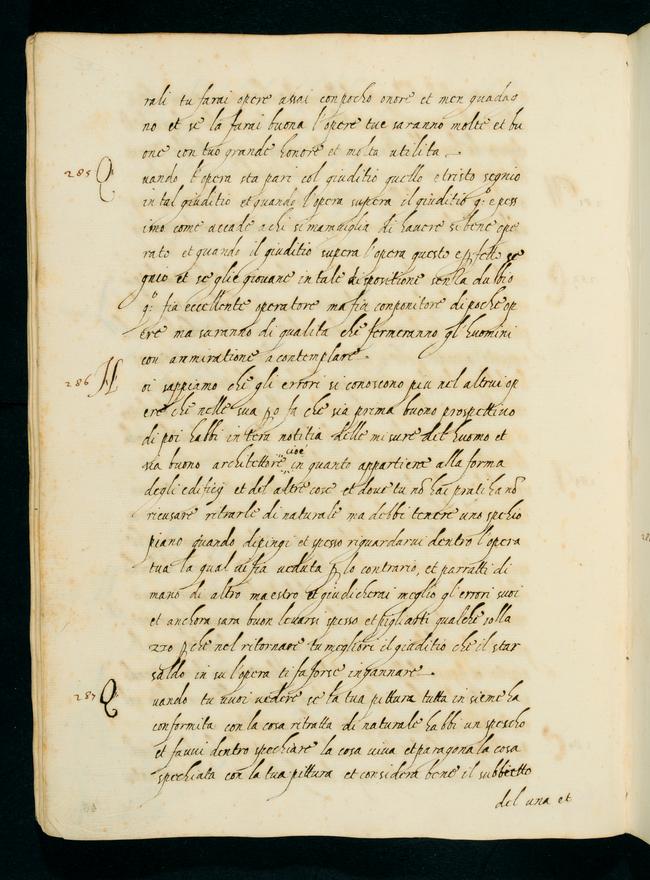 rali tu farai opere assai con pocho onore et men guadag
no et se la farai buona l'opere tue saranno molte et bu
one con tuo grande honore et molta utilita
285 Quando l'opera sta pari col giuditio quello e tristo segnio
in tal giuditio et quando l'opera supera il giuditio q.º e pess
imo come accade a chi si maraviglia di havere si bene ope
rato et quando il giuditio supera l'opera questo e pfetto se
gnio et se glie giovane in tale dispositione senza dubbio
q.º fia eccellente operatore ma fia componitore di poche op
ere ma saranno di qualita che fermeranno gl'huomini
con ammiratione a contemplare
286 Noi sappiamo che gli errori si conoscono piu nel altrui op
ere che nelle sua po fa che sia prima buono prospettivo
di poi habbi intera notitia delle misure del huomo et
sia buono architettore cioé in quanto appartiene alla forma
degli edificij et del altre cose et dove tu nō hai pratiha nō
ricusare ritrarle di naturale ma debbi tenere uno spechio
piano quando dipingi et spesso riguardarvi dentro l'opera
tua la qual vi fia veduta p lo contrario, et parratti di
mano di altro maestro et giudicherai meglio gl'errori tuoi
et anchora sara buon levarsi spesso et pigliarsi qualche solla
zzo pche nel ritornare tu megliori il giuditio che il star
saldo in su l'opera ti fa forse ingannare
287 Quando tu vuoi vedere se la tua pittura tutta insieme ha
conformita con la cosa ritratta di naturale habbi un specho
et favvi dentro spechiare la cosa viva et paragona la cosa
spechiata con la tua pittura et considera bene il subbietto
del una et